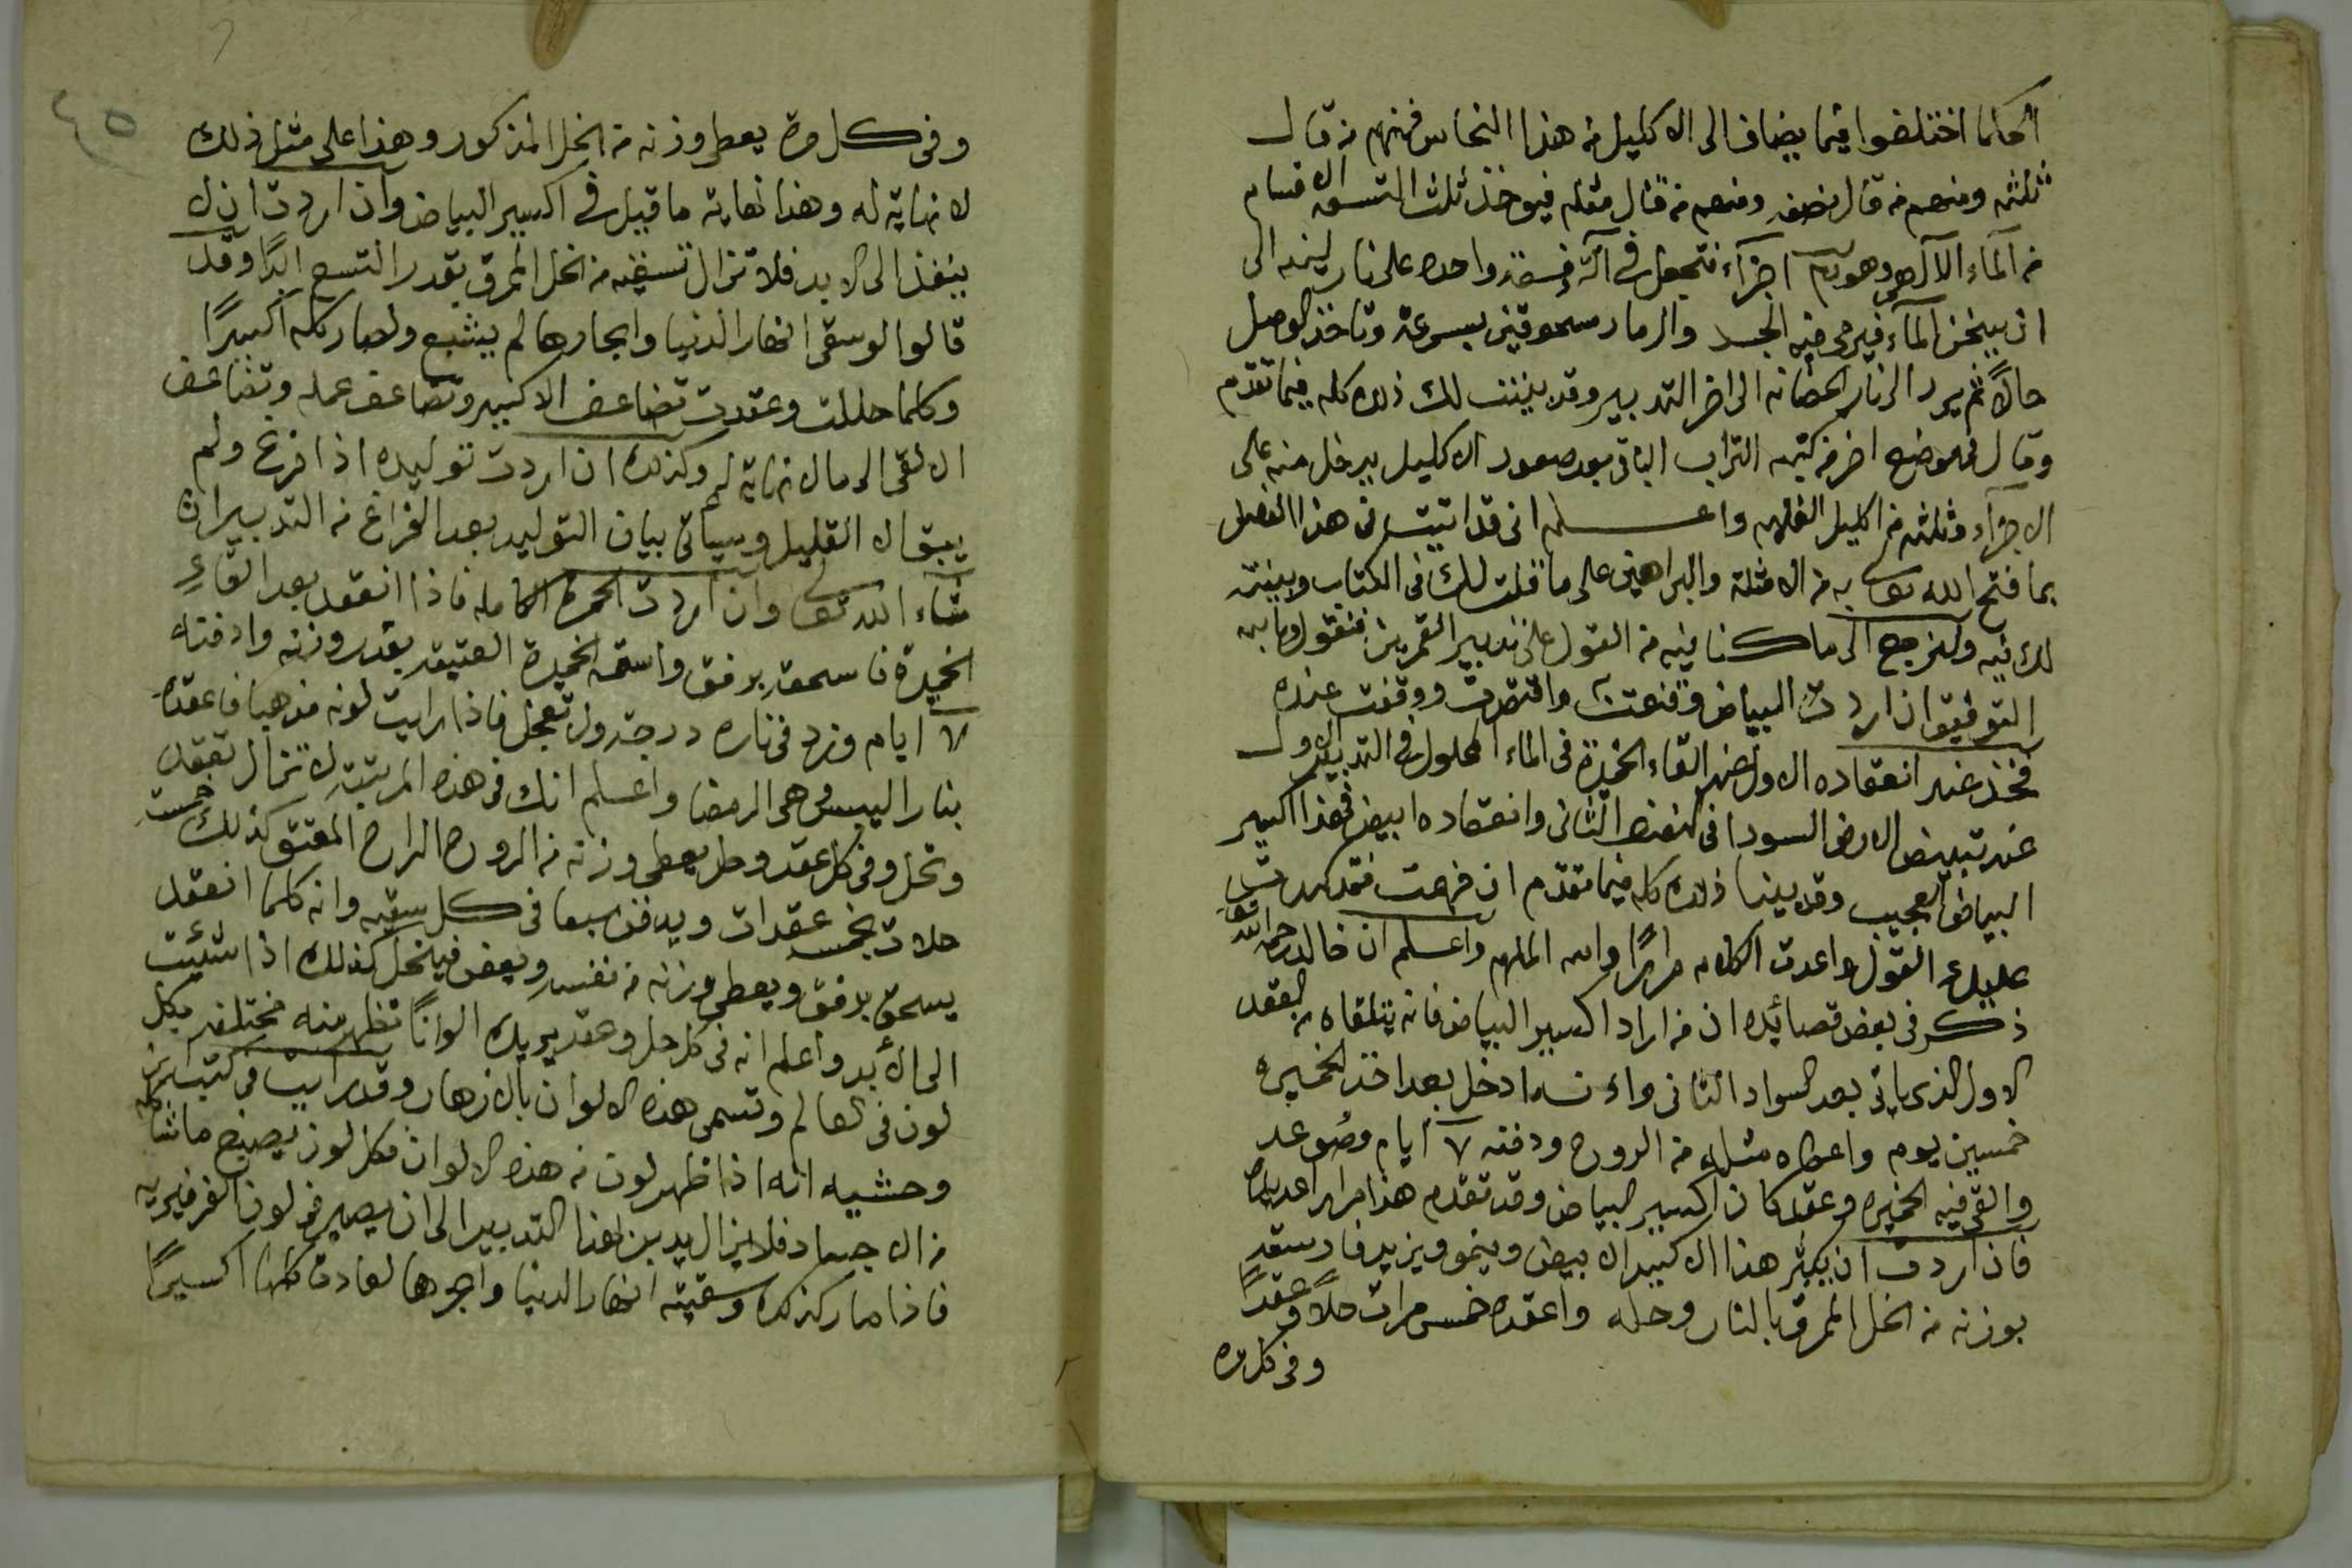 الحكما اختلفوا فيما يضاف الى الاكليل من هذا النحاس فمنهم من قال
ثلثه ومنهم من قال نصفه ومنهم من قال مثله فيوخذ ثلث التسعه الاقسام
من الماء الالهى وهو اجزآء فتجعل فى آلة واحده على نار لينه الى
ان يسخن المآء فيرمى فيه الجسد والرماد مسحوقين بسرعة وتاخذ الوصل
حالاً ثم يرد الى نار الحضانه الى اخر التدبير وقد بينت لك ذلك كله فيما تقدم
وقال فى موضع اخر من كتبه التراب الباقى بعد صعود الاكليل يدخل منه على
الاجزآء وثلثه من اكليل الغلبه واعلم انى قد اتيت فى هذا الفصل
بما فتح الله تعالى به من الامثلة والبراهين على ما قلت لك فى الكتاب وبينته
لك فيه ولنرجع الى ما كنا فيه من القول على تدبير القمرين فنقول وبالله
التوفيق ان اردت البياض وقنعت به واقتصرت ووقفت عنده
فخذ عند انعقاده الاول عند القاء الخميرة فى الماء المحلول فى التدبير الاول
عند تبييض الارض السودا فى النصف الثانى وانعقاده ابيض فهذا اكسير
البياض العجيب وقد بينا ذلك كله فيما تقدم ان فهمت فقد كررت
عليك القول واعدت الكلام مرارًا والله الملهم واعلم ان خالد رحمه الله تعالى
ذكر فى بعض قصائده ان من اراد اكسير البياض فانه يتلقاه من العقد
الاول الذى ياتى بعد السواد الثانى واء نه ادخل بعد اخذ الخميره
خمسين يوم واعطاه مثله من الروح ودفنه ٧ ايام وصُوعد
والقى فيه الخميره وعقد كان اكسير البياض وقد تقدم هذا مرارا عديده
فاذا اردت ان يكثر هذا الاكسير الابيض وينمو ويزيد فاد سقه
بوزنه من الخل المحرق بالنار وحله واعقده خمس مرات حلاً وعقدًا
وفى كل مره
٤٥
وفى كل مرة يعطى وزنه من الخل المذكور وهذا على مثل ذلك
لا نهاية له وهذا نهاية ما قيل فى اكسير البياض وان اردت ان لا
ينفذ الى الابد فلا تزال تسقيه من الخل المحرق بقدر التسع ابدًا وقد
قالوا لو سقى انهار الدنيا وابحارها لم يشبع ولصار كله اكسيرًا
وكلما حللت وعقدت تضاعف الاكسير وتضاعف عمله وتضاعف
الالقى الى مالا نهاية له وكذلك ان اردت توليده اذا فرغ ولم
يبق الا القليل وسيأتى بيان التوليد بعد الفراغ من التدبير ان
شاء الله تعالى وان اردت الحمرة الكامله فاذا انعقد بعد القاء
الخميرة فاسحقه برفق واسقه الخميرة العتيقه بقدر وزنه وادفنه
٧ ايام وزد فى ناره درجة ولا تعجل فاذا رايت لونه مذهبا فاعقده
بنار اليبس وهى الرمضا واعلم انك فى هذه المرتبة لا تزال تعقد
وتحل وفى كل عقد وحل يعطى وزنه من الروح الراح المعتق كذلك خمسة
حلات بخمسه عقدات ويدفن سبعا فى كل سقيه وانه كلما انعقد
يسحق برفق ويعطى وزنه من نفسه ويعفن فينحل كذلك اذا شئت
الى الأبد واعلم انه فى كل حل وعقد يريك الوانًا تظهر منه مختلفه بكل
لون فى العالم وتسمى هذه الالوان بالازهار وقد رايت فى كتب
وحشيه انه اذا ظهر لون من هذه الالوان فكل لون يصبغ ماشاكله
من الاجساد فلايزال يدبر بهذا التدبير الى ان يصير فى لون الفرفيريه
فاذا صار كذلك وسقيته انهار الدنيا وابحرها لعادت كلها اكسيرًا